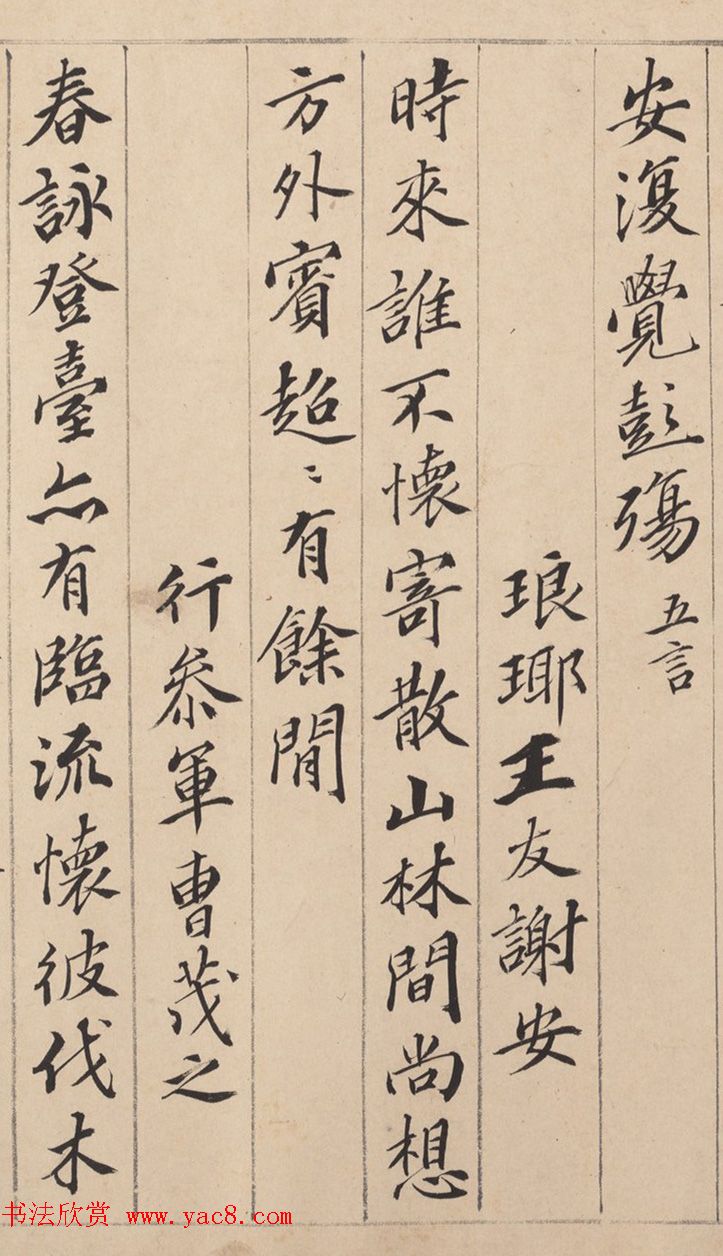 安復覺彭殤 五言
琅瑘王友謝安
時來誰不懷寄散山林間尚想
方外賓超〻有餘閒
行叅軍曹茂之
春詠登臺亦有臨流懷彼伐木
书法欣赏 www.yac8.com